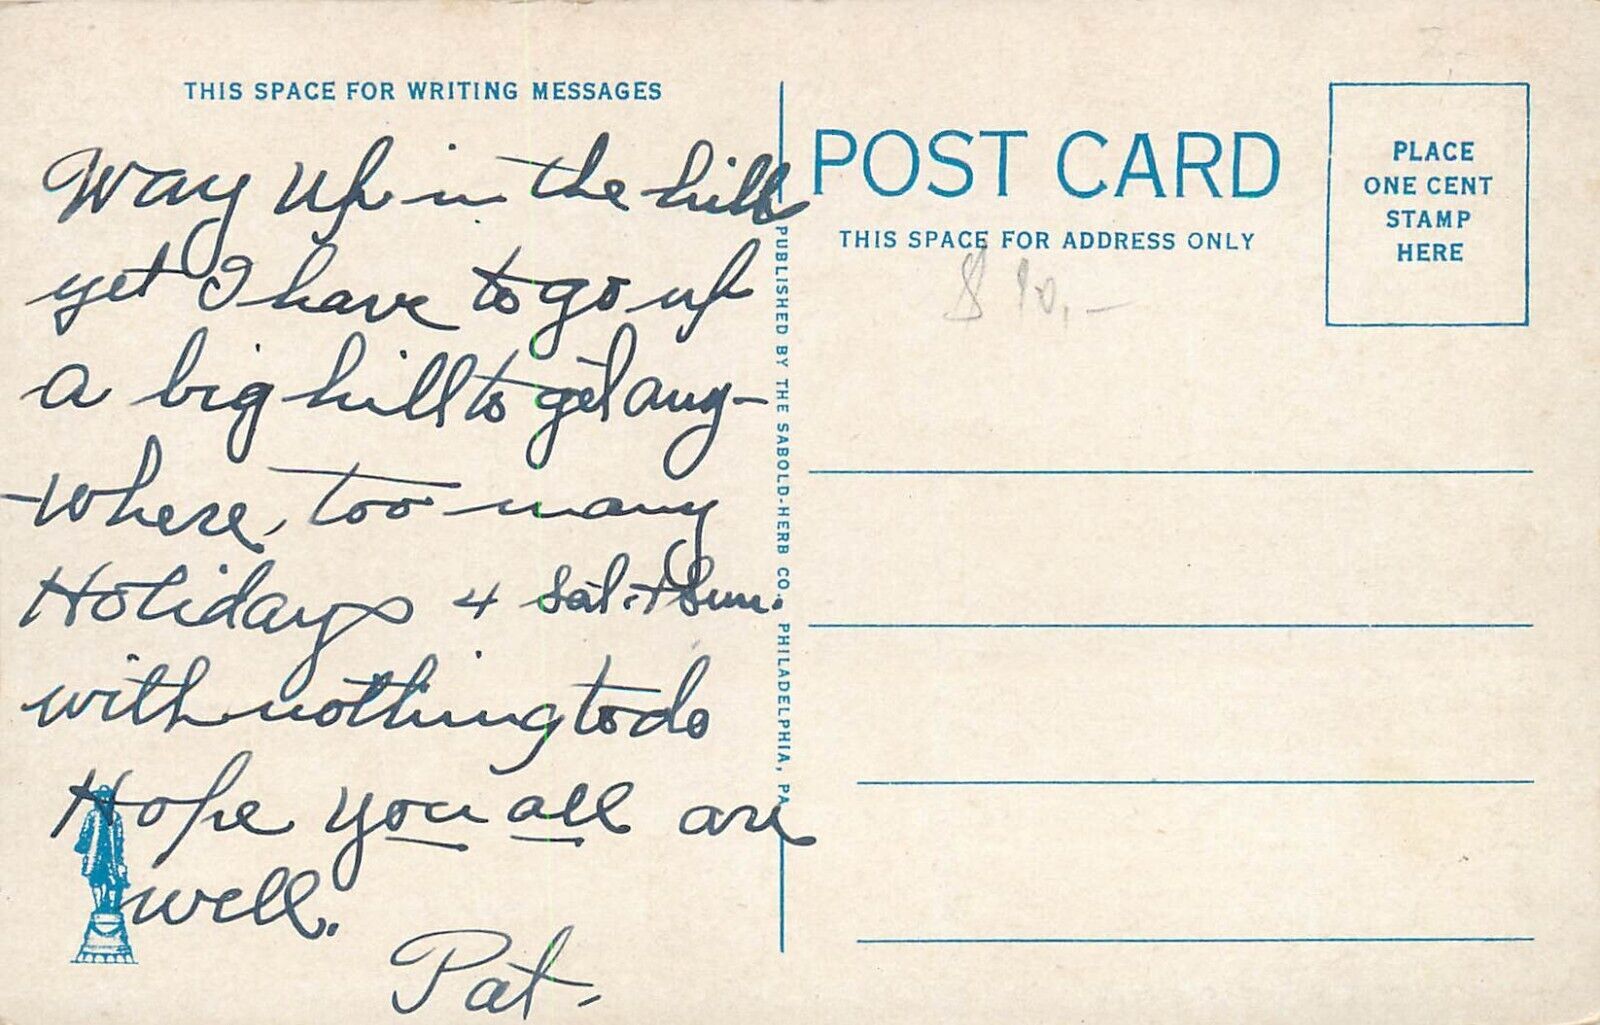 THIS SPACE FOR WRITING MESSAGES
Way up in the hills
yet I have to go up
a big hill to get any-
-where, too many
Holidays + Sat. + Sun.
with nothing to do
Hope you all are
well.
Pat.
PUBLISHED BY THE SABOLD-HERB CO., PHILADELPHIA, PA.
POST CARD
THIS SPACE FOR ADDRESS ONLY
$ 10,-
PLACE
ONE CENT
STAMP
HERE